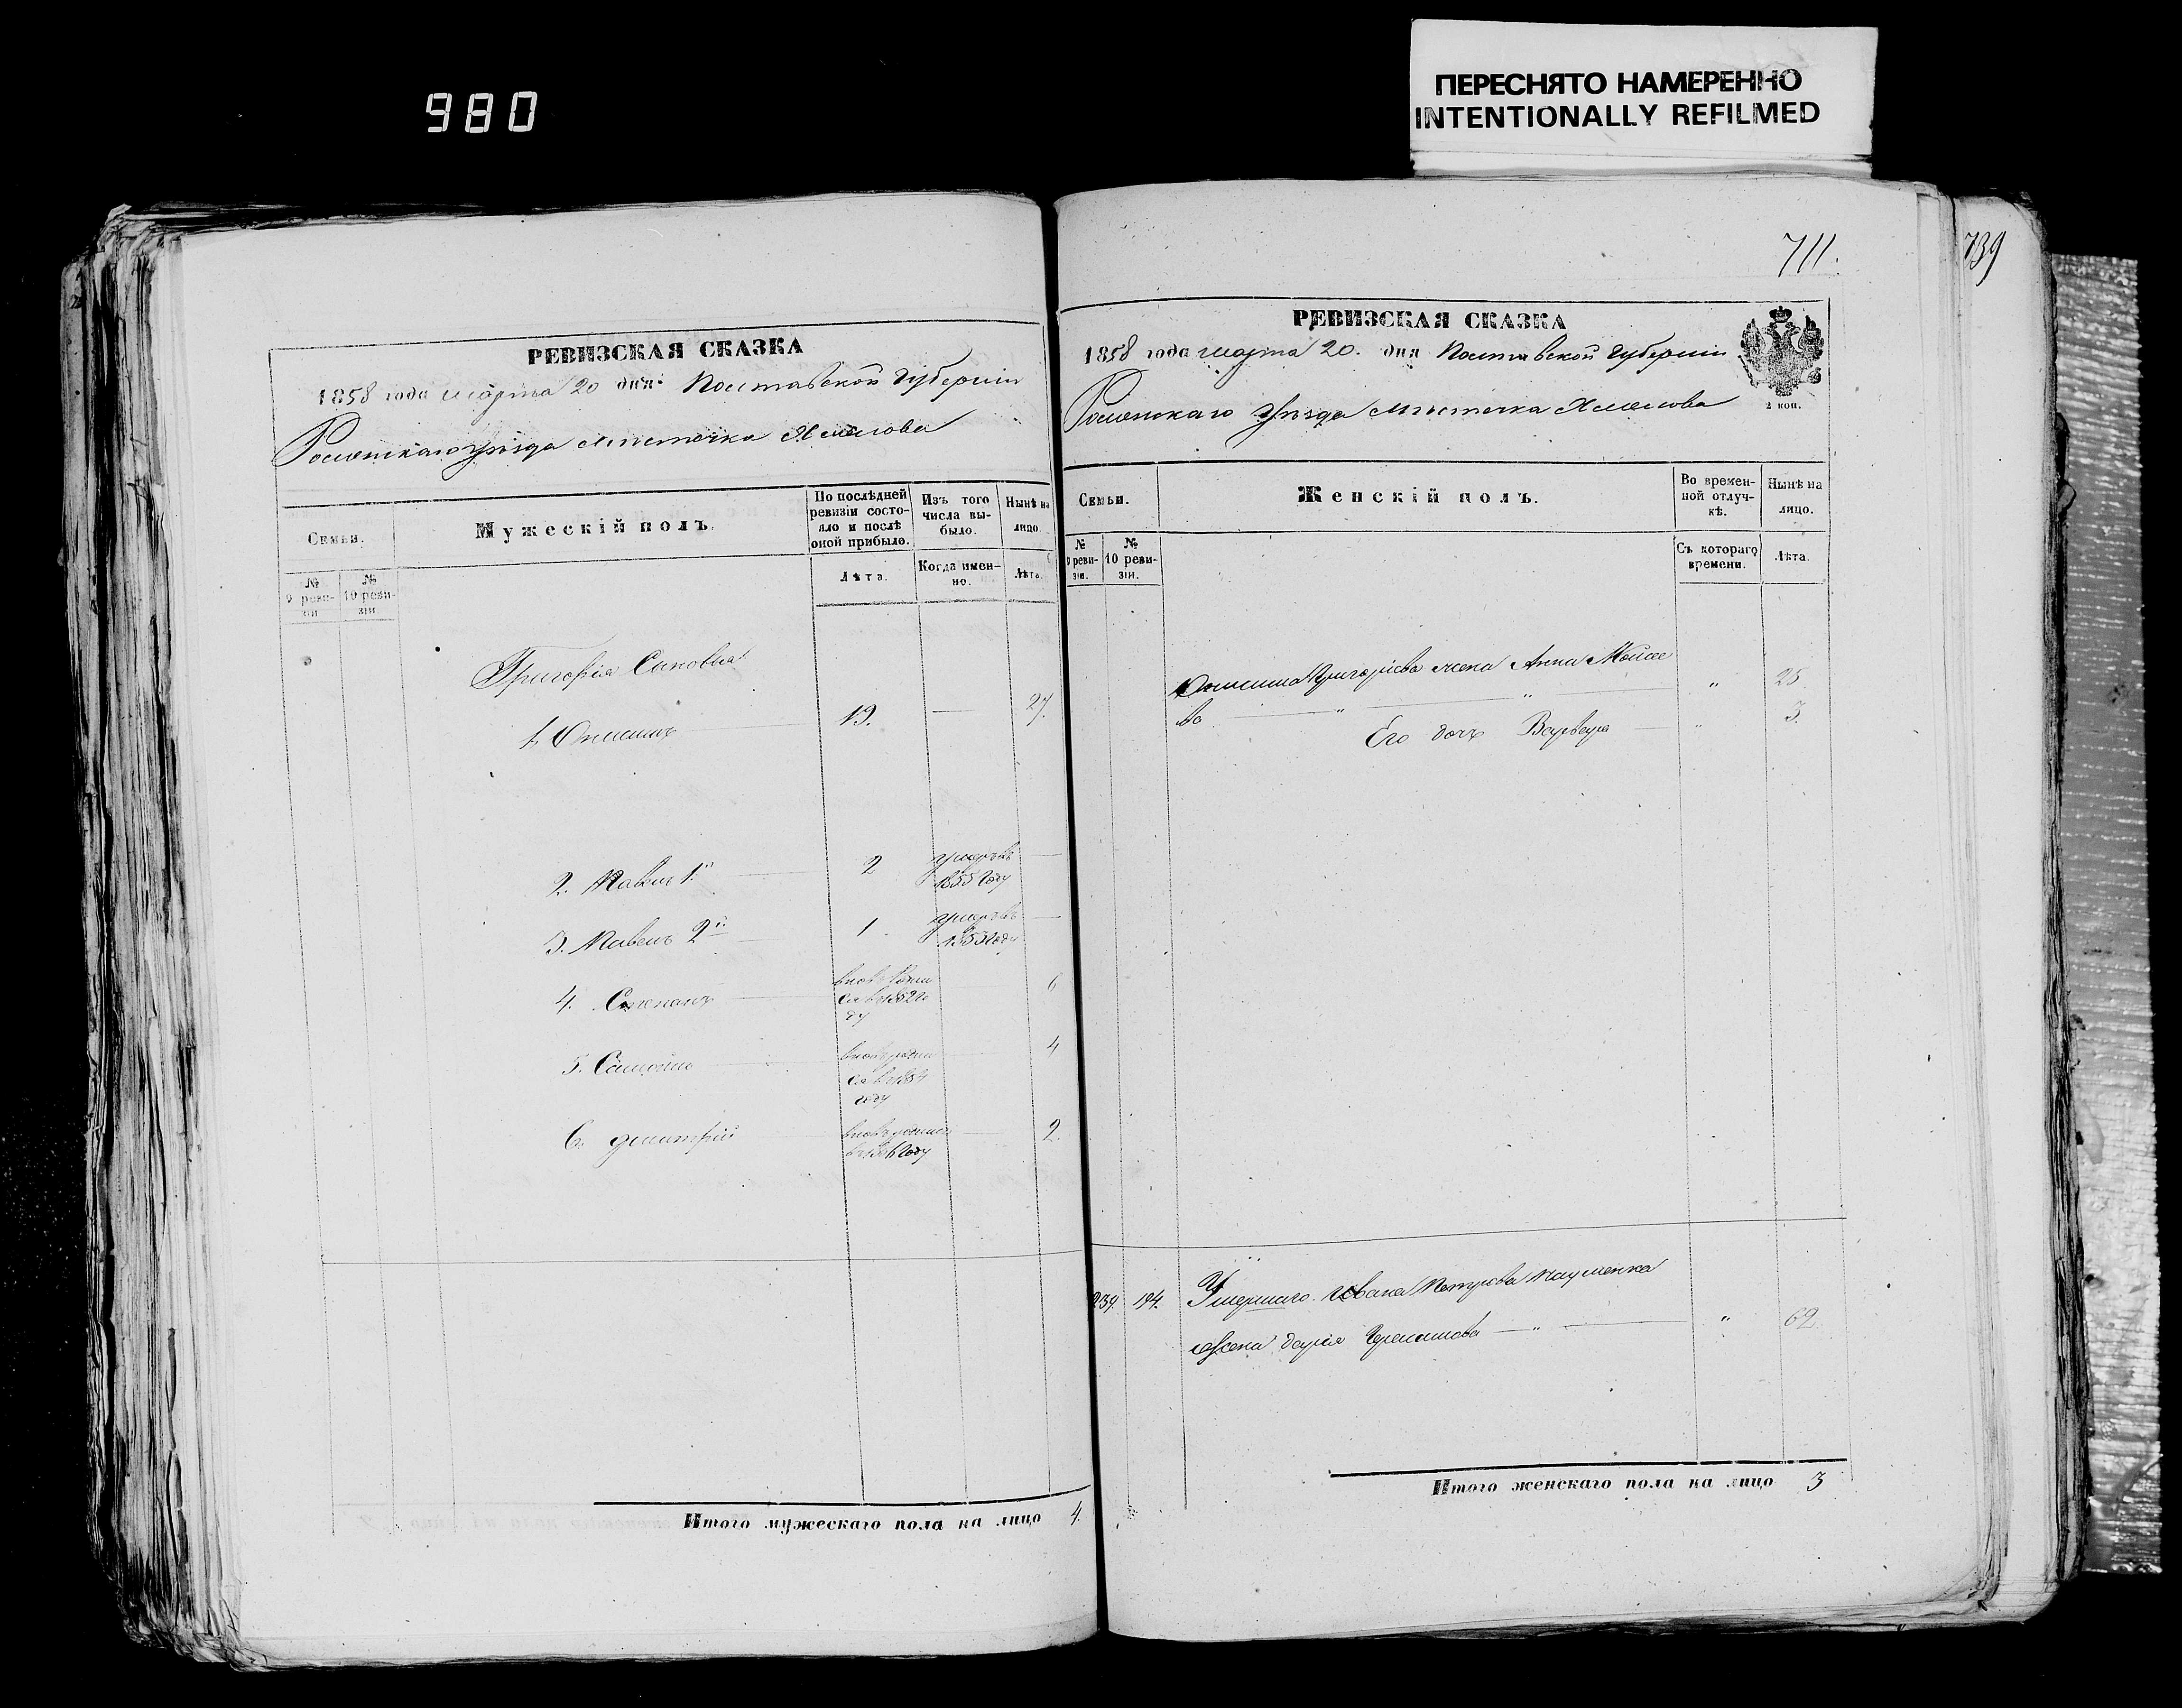 980
ПЕРЕСНЯТО НАМЕРЕННО
INTENTIONALLY REFILMED
711.
739
РЕВИЗСКАЯ СКАЗКА
1858 года марта 20 дня Полтавской Губернии
Роменскаго уѣзда Мѣстечка Хмелова
Семьи.
Мужескій полъ.
По послѣдней ревизіи состояло и послѣ оной прибыло.
Изъ того числа выбыло.
Нынѣ на лицо.
№ 9 ревизіи
№ 10 ревизіи
Лѣта.
Когда именно.
Лѣта.
Григорія Сыновья
1. Онисимъ 19. — 27.
2. Павелъ 1й 2 умеръ въ —
1855 Году
3. Павелъ 2й 1 умеръ въ —
1853 Году
4. Степанъ вновь роди 6
ся въ 1852 го
ду
5. Самойло вновь роди 4
ся въ 1854
году
6. Дмитрій вновь родился 2
въ 1856 Году
Итого мужескаго пола на лицо 4.
РЕВИЗСКАЯ СКАЗКА
1858 года марта 20. дня Полтавской Губернии
Роменскаго Уѣзда Мѣстечка Хмелова
2 коп.
Семьи.
Женскій полъ.
Во временной отлучкѣ.
Нынѣ на лицо.
№ 9 ревизіи.
№ 10 ревизіи.
Съ котораго времени.
Лѣта.
Онисима Григоріева жена Анна Мойсее
ва " " " 25
Его дочь Варвара — " 3.
239. 194. Умершаго Ивана Петрова Науменка
жена Дарія — " — " 69
Итого женскаго пола на лицо 3